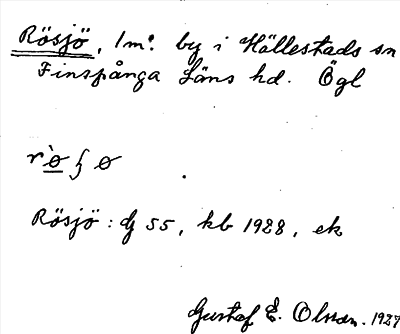 Rösjö, 1 m. by i Hällestads sn
Finspånga Läns hd. Ögl
rø̀ʃø
Rösjö: dj 55, kb 1928, ek
Gustaf E. Olsson. 1927